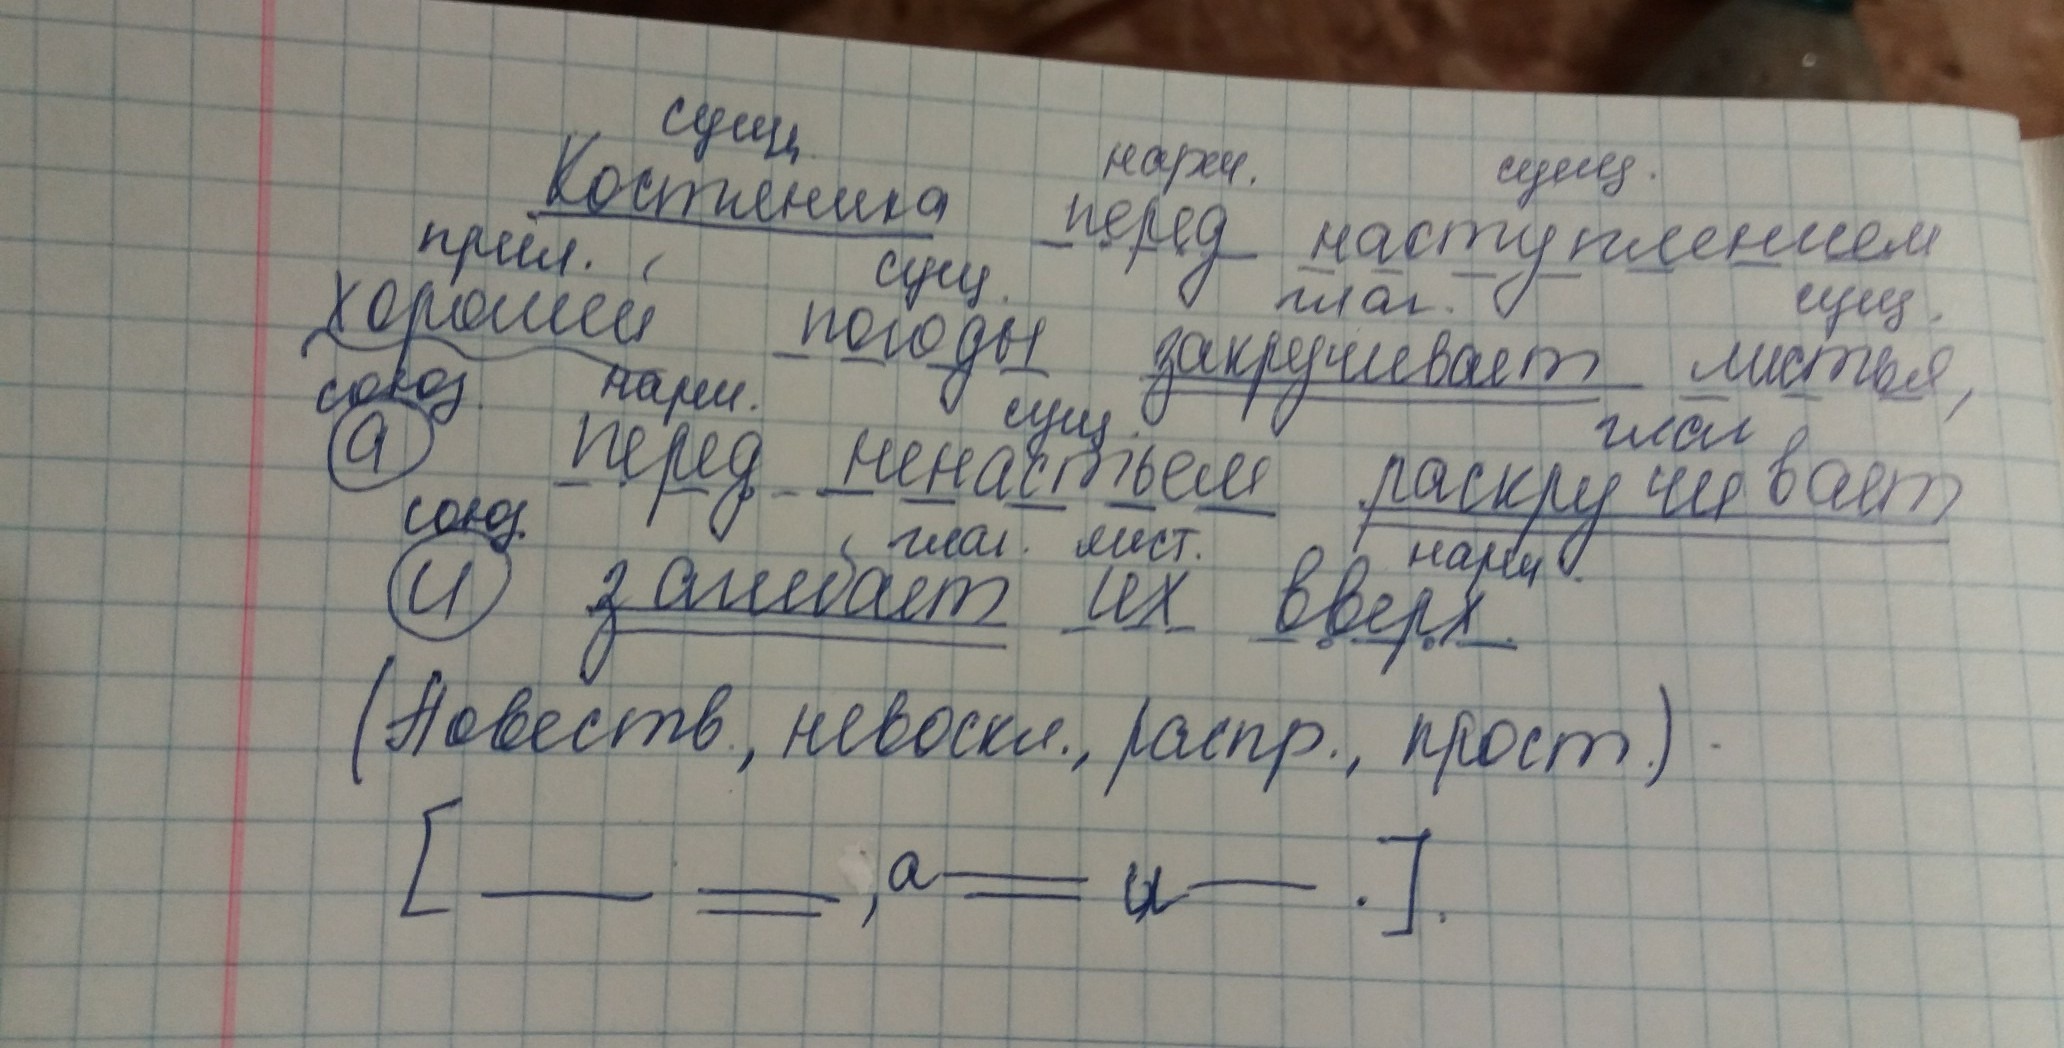 сущ.
Костяника перед наступлением
нареч. сущ.
прил. сущ. глаг. сущ.
хорошей погоды закручивает листья,
союз. нареч. сущ. глаг
а перед ненастьем раскручивает
союз. глаг. мест. нареч.
и загибает их вверх.
(Повеств., невоскл., распр., прост.)
[ , а и . ].